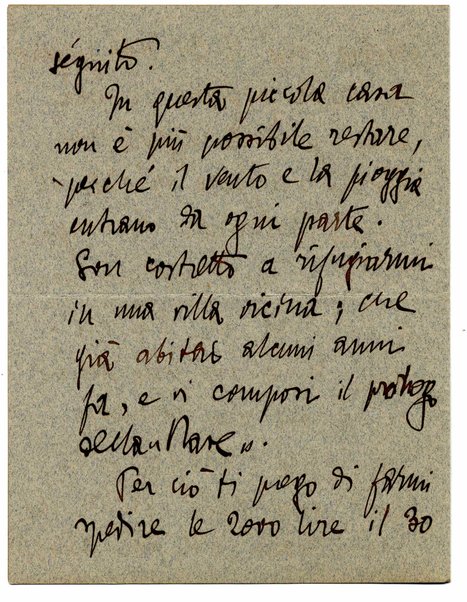 séguito.
In questa piccola casa
non è più possibile restare,
perché il vento e la pioggia
entrano da ogni parte.
Son costretto a rifugiarmi
in una villa vicina; che
già abitai alcuni anni
fa, e vi composi il prologo
della « Nave ».
Per ciò ti prego di farmi
spedire le 2000 lire il 30